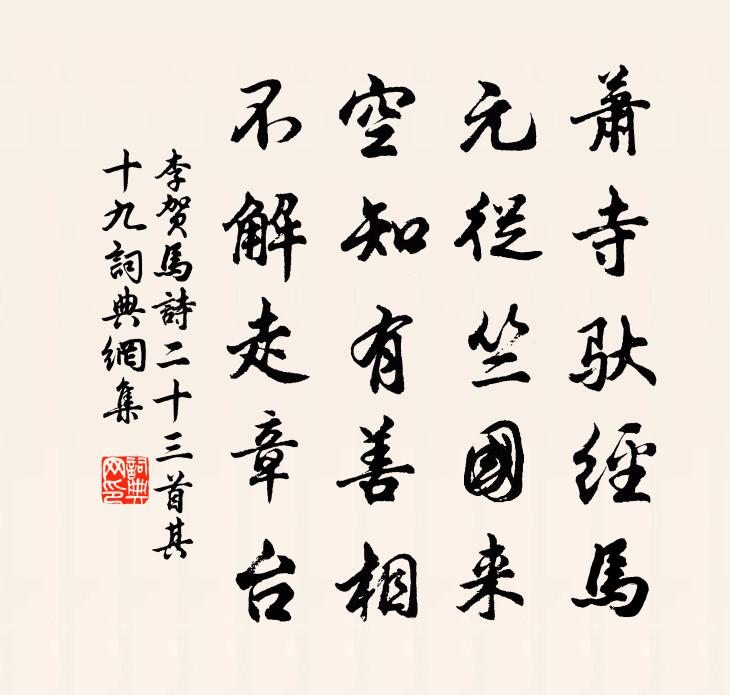 蕭寺馱經馬
元從竺國来
空知有善相
不解走章台
李賀馬詩二十三首其
十九詞典網集
詞典
网印